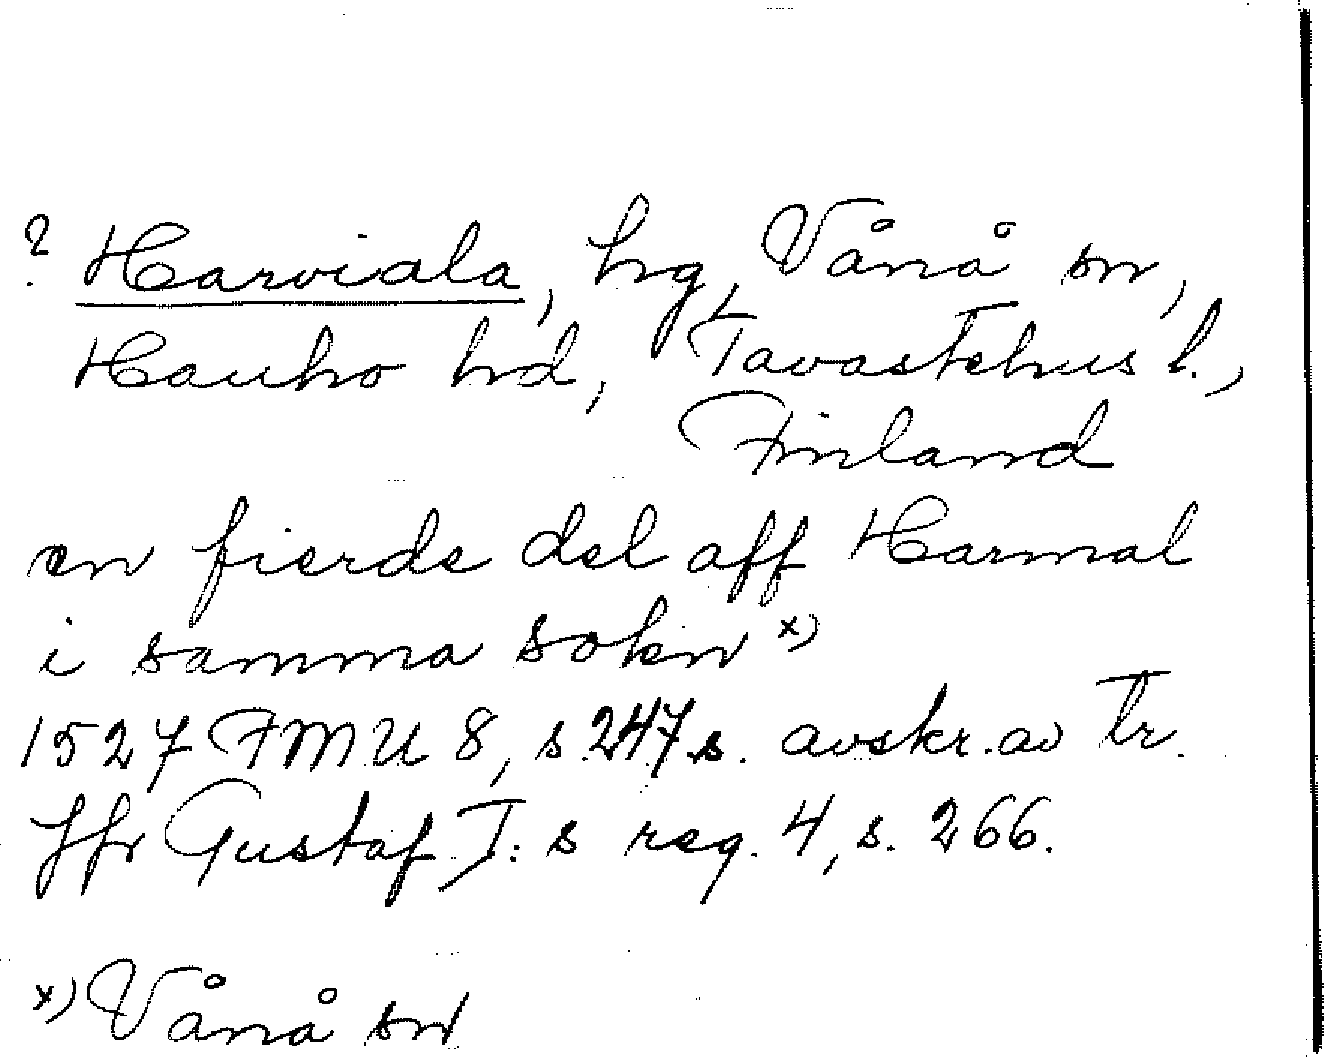 ? Harviala, hrg, Vånå sn,
Hauho hd, Tavastehus l.,
Finland
en fierde del aff Harmal
i samma sokn x)
1527 FMU 8, s. 247 s. avskr. av tr.
Jfr Gustaf I:s reg. 4, s. 266.
x) Vånå sn